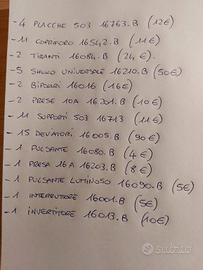 -4 PLACCHE 503 16763.B (12€)
-11 COPRIFORO 16542.B (11€)
-2 TIRANTI 16084.B (24€)
-5 SUONO UNIVERSALE 16210.B (50€)
-2 BIPOLARI 16016 (16€)
-2 PRESE 10A 16201.B (10€)
-11 SUPPORTI 503 16713 (11€)
-15 DEVIATORI 16005.B (90€)
-1 PULSANTE 16080.B (4€)
-1 PRESA 16A 16203.B (8€)
-1 PULSANTE LUMINOSO 16090.B (5€)
-1 INTERRUTTORE 16001.B (5€)
-1 INVERTITORE 16013.B (10€)
Subito